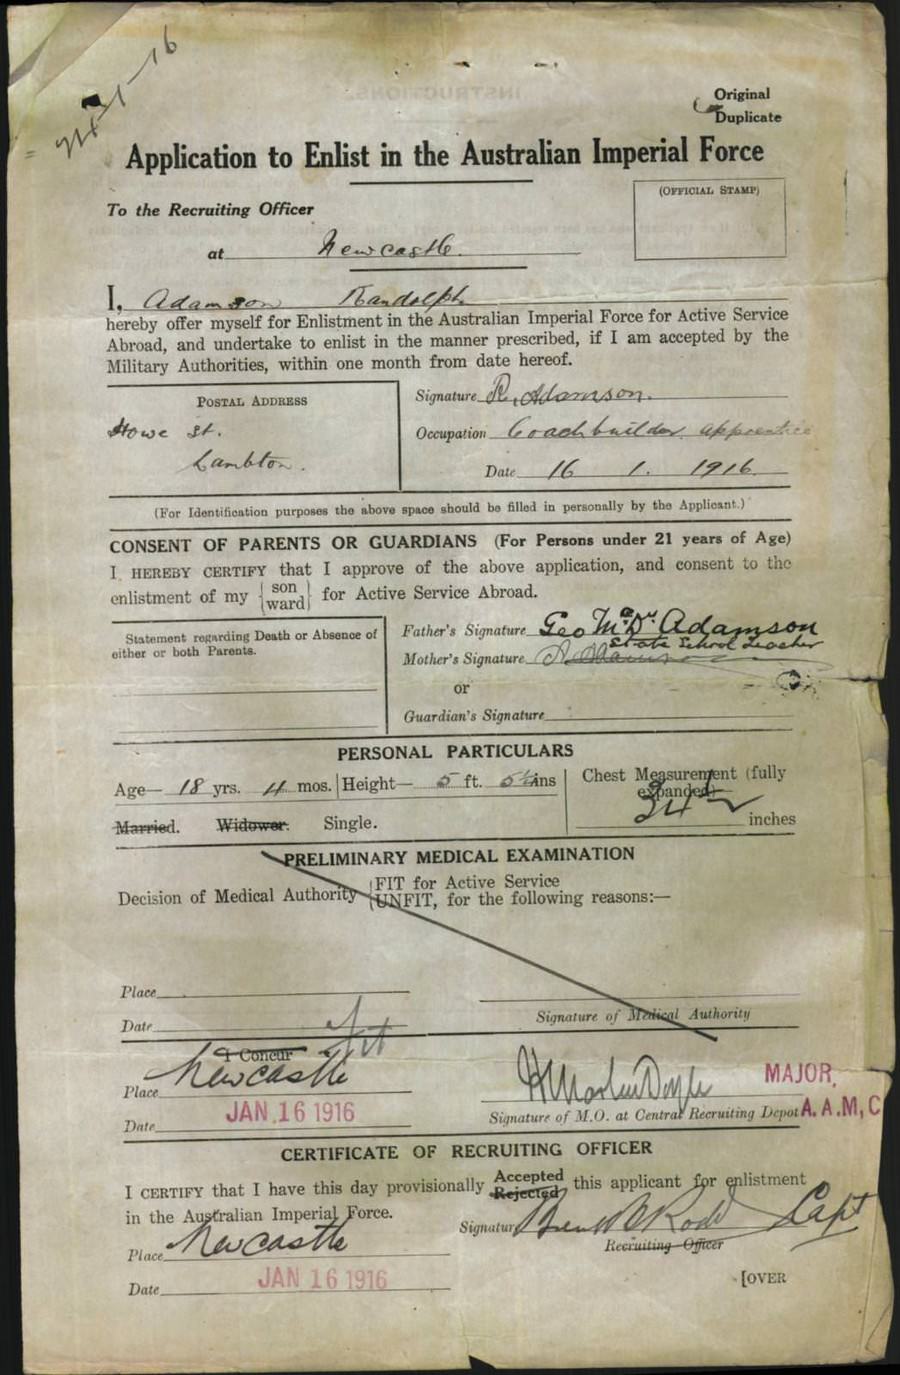 Original
Duplicate
Application to Enlist in the Australian Imperial Force
(OFFICIAL STAMP)
To the Recruiting Officer
at Newcastle.
I, Adamson Randolph
hereby offer myself for Enlistment in the Australian Imperial Force for Active Service
Abroad, and undertake to enlist in the manner prescribed, if I am accepted by the
Military Authorities, within one month from date hereof.
POSTAL ADDRESS
Howe St.
Lambton.
Signature R. Adamson.
Occupation Coachbuilder apprentice
Date 16 1. 1916.
(For Identification purposes the above space should be filled in personally by the Applicant.)
CONSENT OF PARENTS OR GUARDIANS (For Persons under 21 years of Age)
I HEREBY CERTIFY that I approve of the above application, and consent to the
enlistment of my {son ward} for Active Service Abroad.
Statement regarding Death or Absence of
either or both Parents.
Father's Signature Geo Adamson
State School Teacher
Mother's Signature
or
Guardian's Signature
PERSONAL PARTICULARS
Age— 18 yrs. 4 mos. Height— 5 ft. 5½ ins
Chest Measurement (fully
expanded)—
34½ inches
Married. Widower. Single.
PRELIMINARY MEDICAL EXAMINATION
Decision of Medical Authority {FIT for Active Service
{UNFIT, for the following reasons:—
Place
Date
Signature of Medical Authority
fit
I Concur
Place Newcastle
Date JAN 16 1916
MAJOR,
Signature of M.O. at Central Recruiting Depot A.A.M,C
CERTIFICATE OF RECRUITING OFFICER
I CERTIFY that I have this day provisionally Accepted Rejected this applicant for enlistment
in the Australian Imperial Force.
Signature Capt
Recruiting Officer
Place Newcastle
Date JAN 16 1916
[OVER